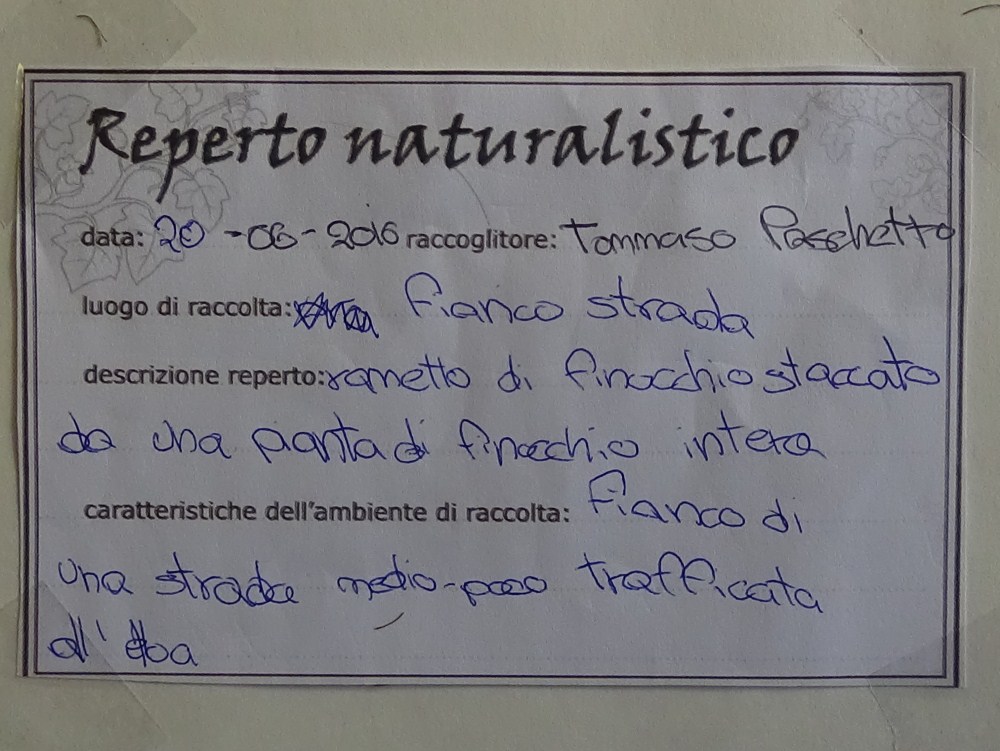 Reperto naturalistico
data: 20-06-2016 raccoglitore: Tommaso Paschetto
luogo di raccolta: fianco strada
descrizione reperto: rametto di finocchio staccato
da una pianta di finocchio intera
caratteristiche dell'ambiente di raccolta: fianco di
una strada medio-poco trafficata
all'elba